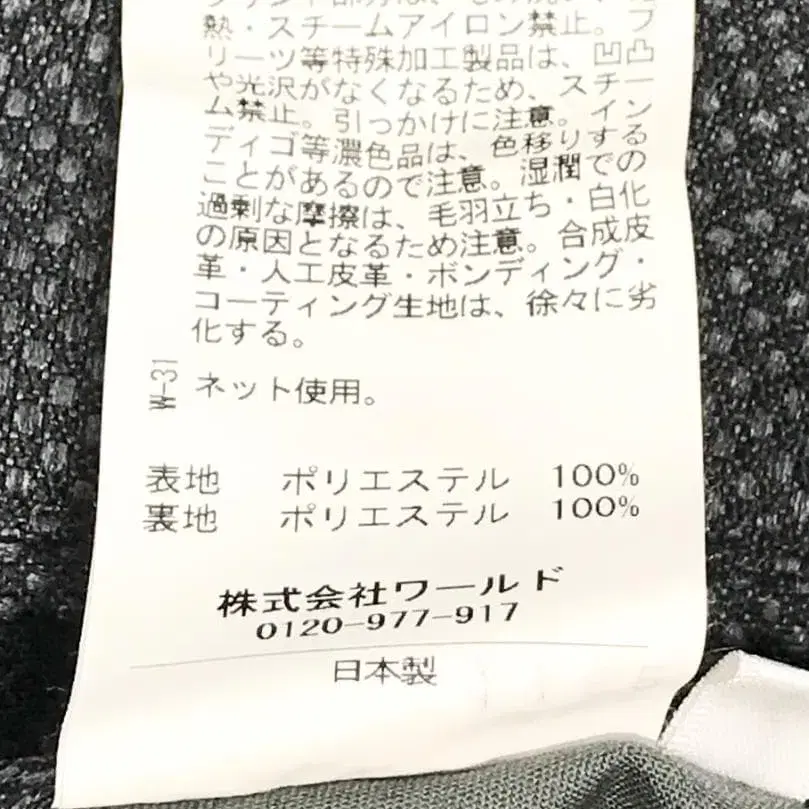 熱・スチームアイロン禁止。プ
リーツ等特殊加工製品は、凹凸
や光沢がなくなるため、スチー
ム禁止。引っかけに注意。イン
ディゴ等濃色品は、色移りする
ことがあるので注意。湿潤での
過剰な摩擦は、毛羽立ち・白化
の原因となるため注意。合成皮
革・人工皮革・ボンディング・
コーティング生地は、徐々に劣
化する。
W-31
ネット使用。
表地 ポリエステル 100%
裏地 ポリエステル 100%
株式会社ワールド
0120-977-917
日本製